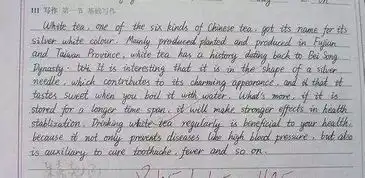 III 写作 第一节 基础写作
White tea, one of the six kinds of Chinese tea, got its name for its
silver white colour. Mainly planted and produced in Fujian
and Taiwan Province, white tea has a history dating back to Bei Song
Dynasty. It is interesting that it is in the shape of a silver
needle, which contributes to its charming appearance, and that it
tastes sweet when you boil it with water. What's more, if it is
stored for a longer time span, it will make stronger effects in health
stablization. Drinking white tea regularly is beneficial to your health,
because it not only prevents diseases like high blood pressure, but also
is auxiliary to cure toothache, fever and so on.